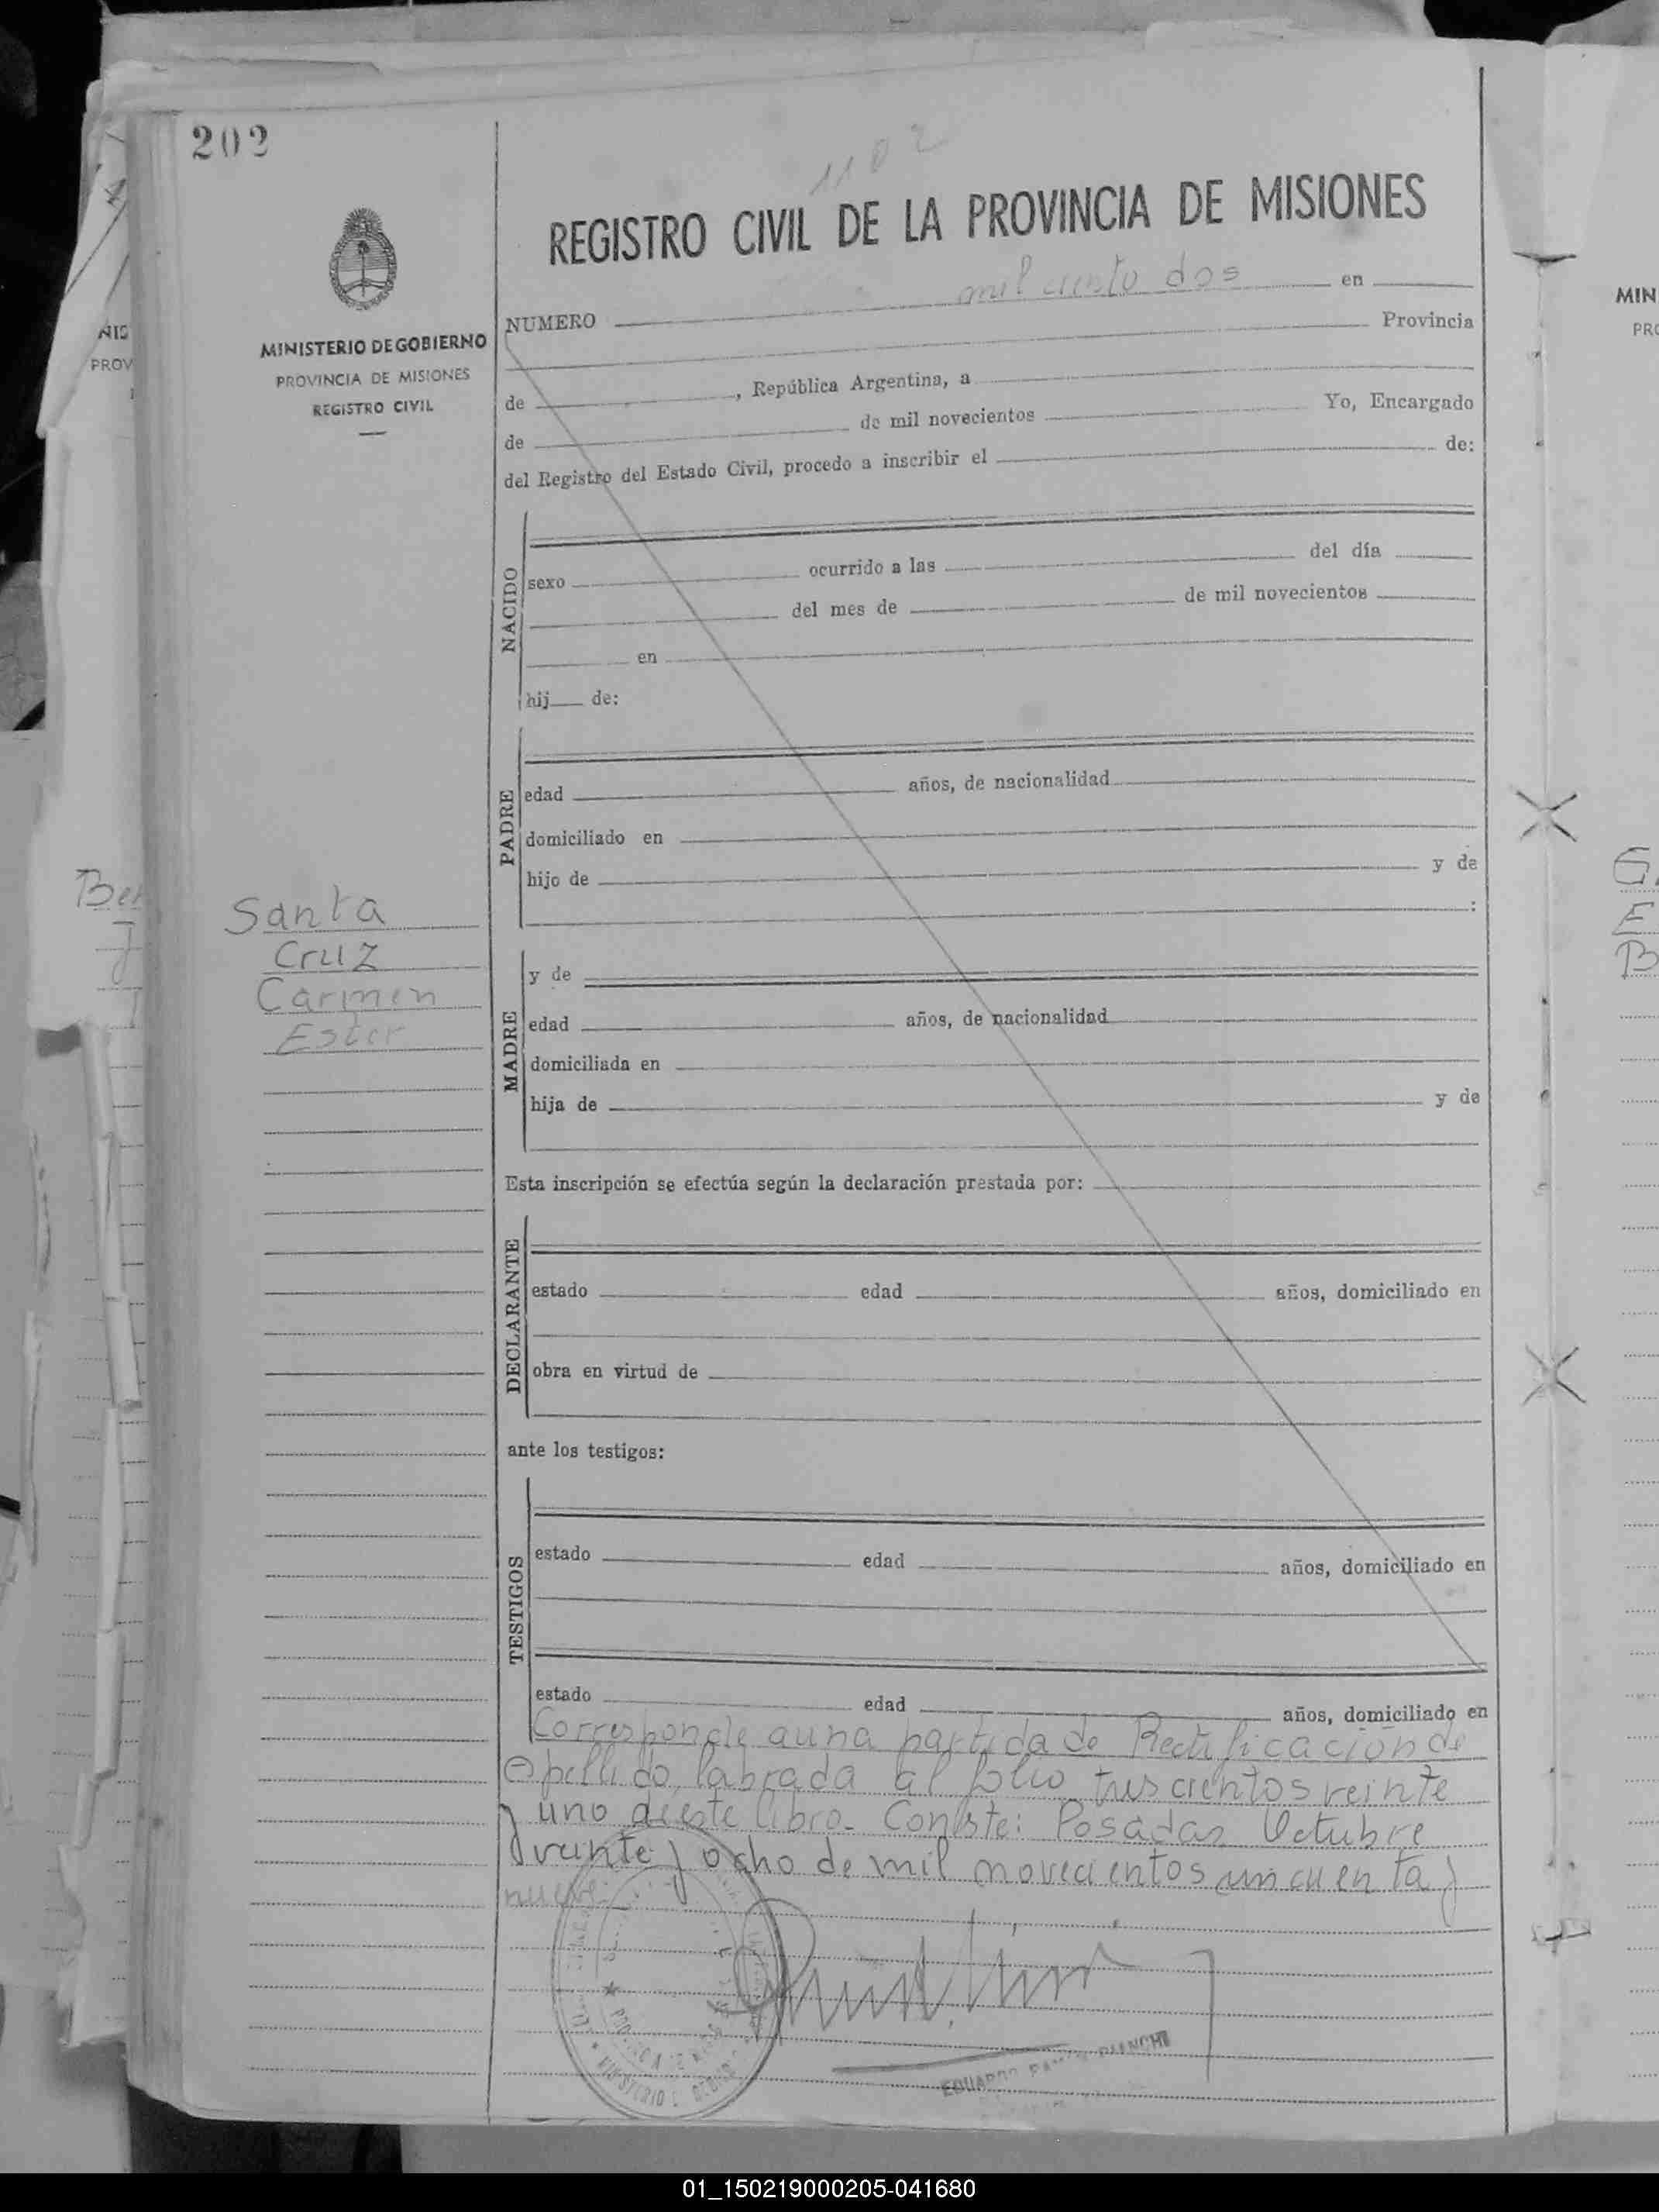 202
1102
REGISTRO CIVIL DE LA PROVINCIA DE MISIONES
MINISTERIO DE GOBIERNO
PROVINCIA DE MISIONES
REGISTRO CIVIL
NUMERO mil ciento dos en
Provincia
de , República Argentina, a
de de mil novecientos Yo, Encargado
del Registro del Estado Civil, procedo a inscribir el de:
NACIDO
sexo ocurrido a las del día
del mes de de mil novecientos
en
hij de:
PADRE
edad años, de nacionalidad
domiciliado en
hijo de y de
:
Santa
Cruz
Carmen
Ester
MADRE
y de
edad años, de nacionalidad
domiciliada en
hija de y de
Esta inscripción se efectúa según la declaración prestada por:
DECLARANTE
estado edad años, domiciliado en
obra en virtud de
ante los testigos:
TESTIGOS
estado edad años, domiciliado en
estado edad años, domiciliado en
Corresponde a una partida de Rectificación de
Apellido labrada al folio trescientos veinte
y uno de este libro. Conste: Posadas Octubre
veinte y ocho de mil novecientos cincuenta y
nueve.
EDUARDO BIANCHI
MIN
PRO
NIS
PROV
Ber
01_150219000205-041680